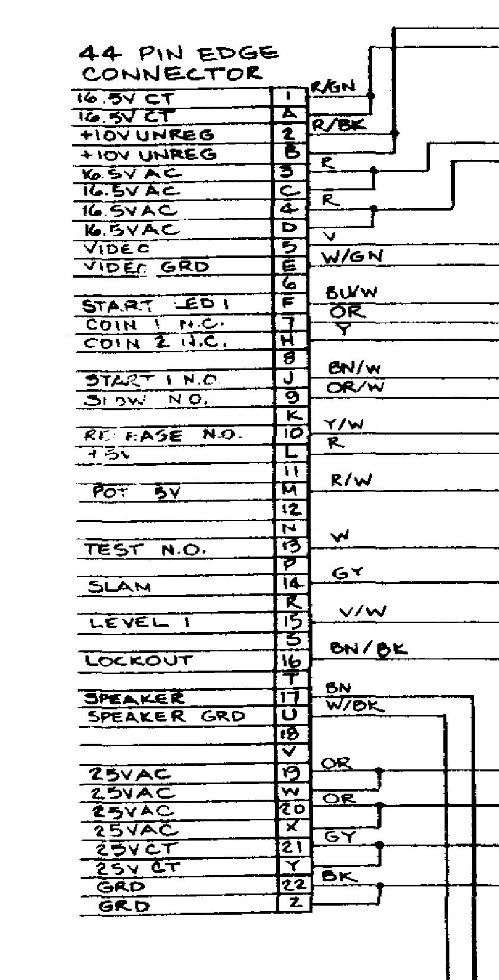 44 PIN EDGE
CONNECTOR
16.5V CT 1 R/GN
16.5V CT A
+10V UNREG 2 R/BK
+10V UNREG B
16.5V AC 3 R
16.5V AC C
16.5VAC 4 R
16.5VAC D
VIDEO 5 V
VIDEO GRD E W/GN
6
START LED 1 F BU/W
COIN 1 N.C. 7 OR
COIN 2 N.C. H Y
8
START 1 N.O J BN/W
SLOW N.O. 9 OR/W
K
RELEASE N.O. 10 Y/W
+5V L R
11
POT 5V M R/W
12
N
TEST N.O. 13 W
P
SLAM 14 GY
R
LEVEL 1 15 V/W
S
LOCKOUT 16 BN/BK
T
SPEAKER 17 BN
SPEAKER GRD U W/BK
18
V
25VAC 19 OR
25VAC W
25VAC 20 OR
25VAC X
25VCT 21 GY
25V CT Y
GRD 22 BK
GRD Z